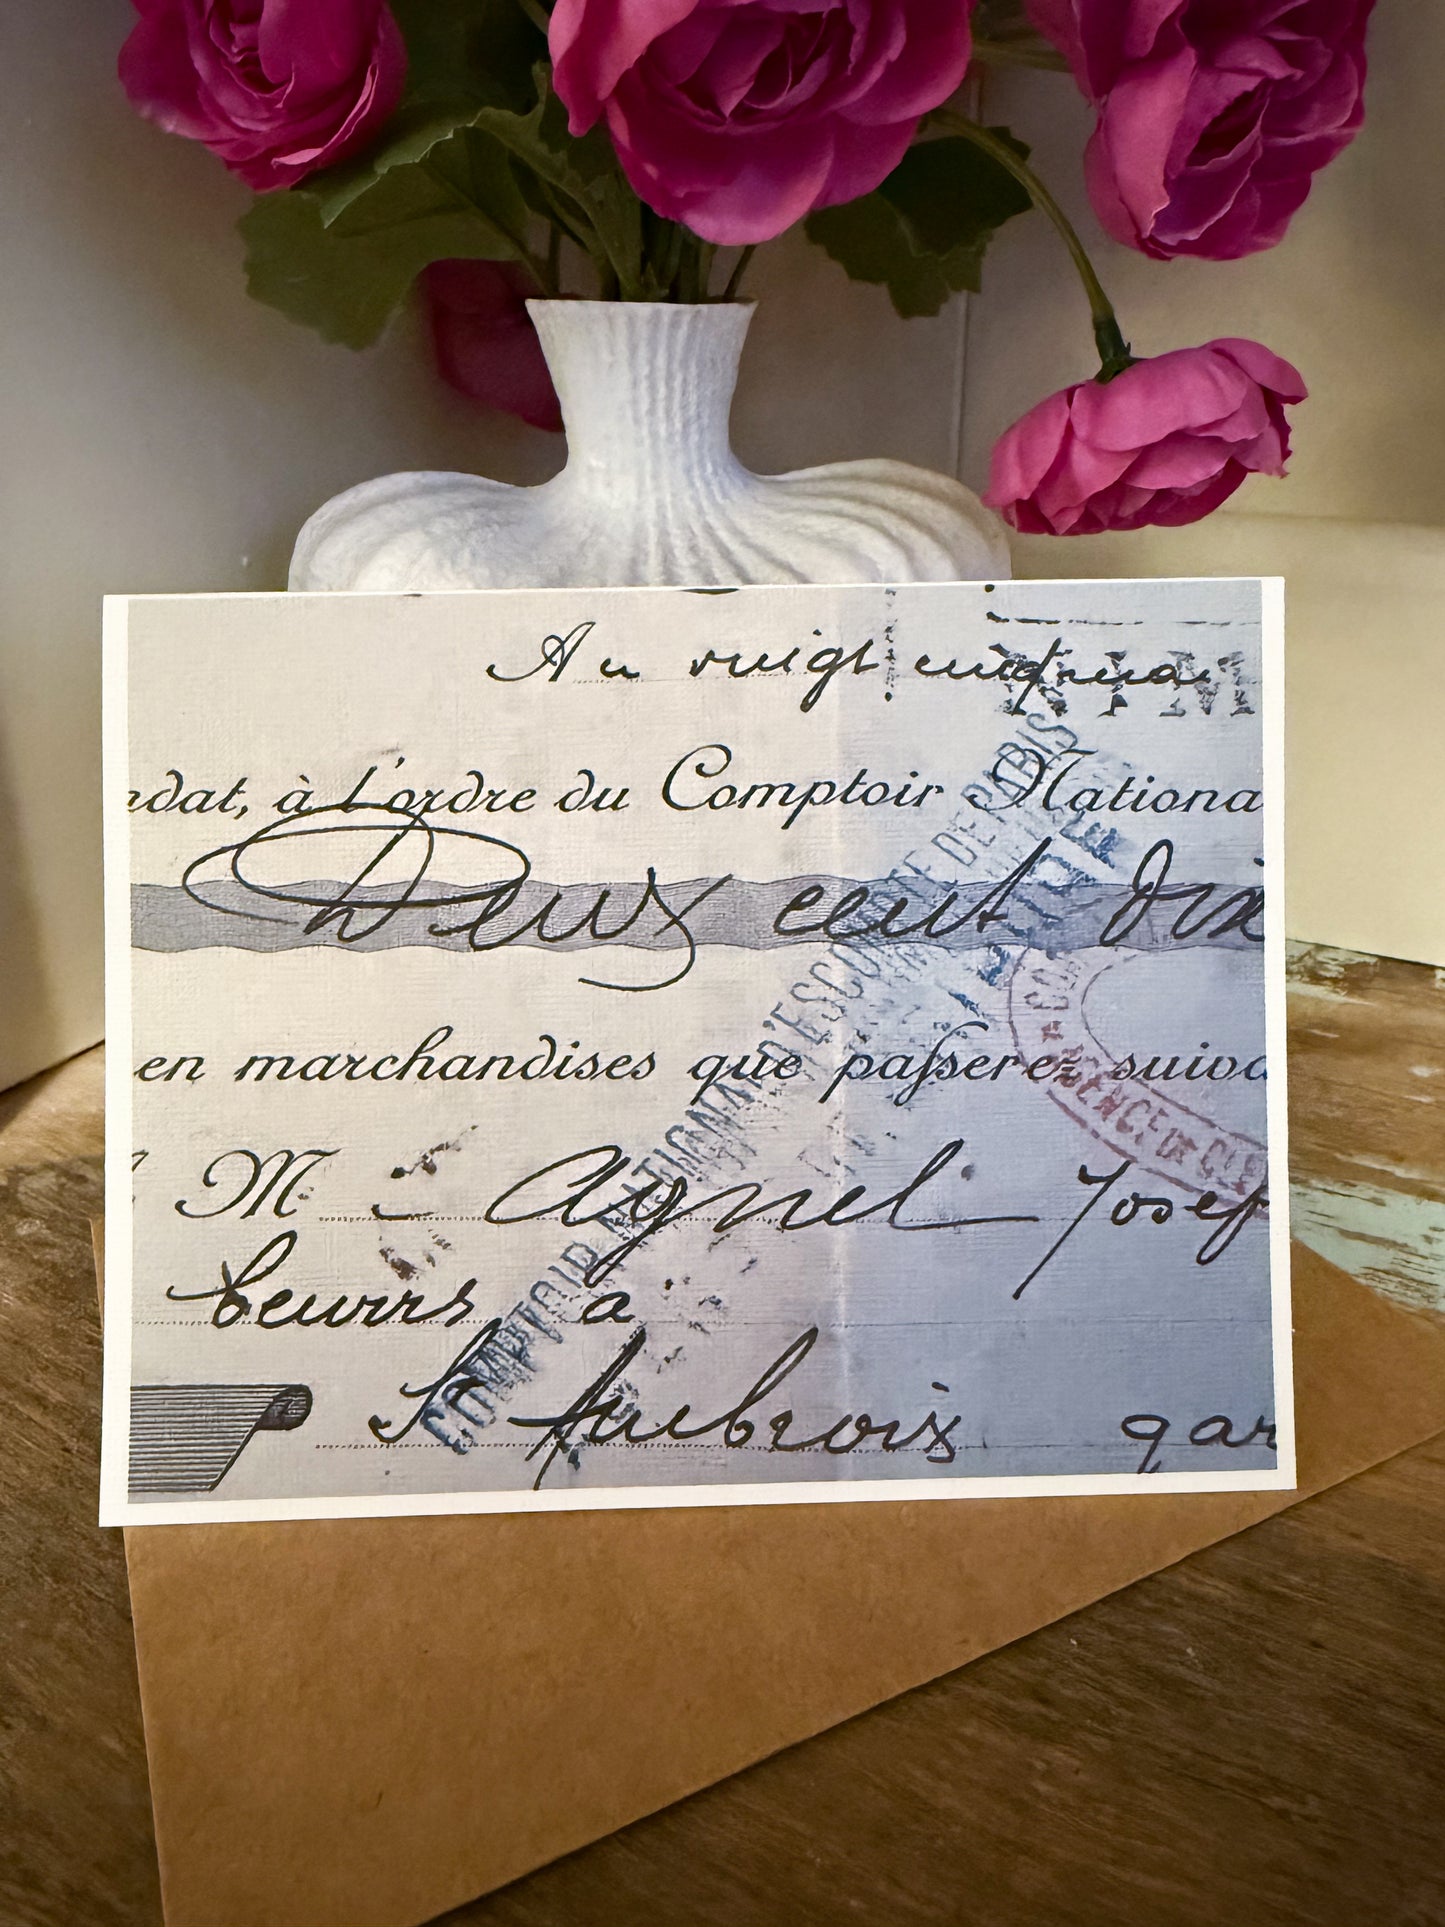 Au vingt cinq mai
ndat, à l'ordre du Comptoir Nationa
Deux cent dix
en marchandises que passerez suiva
M Agnel Josef
beurrs à
St Aubroix gar
COMPTOIR NATIONAL D'ESCOMPTE DE PARIS
AGENCE DE